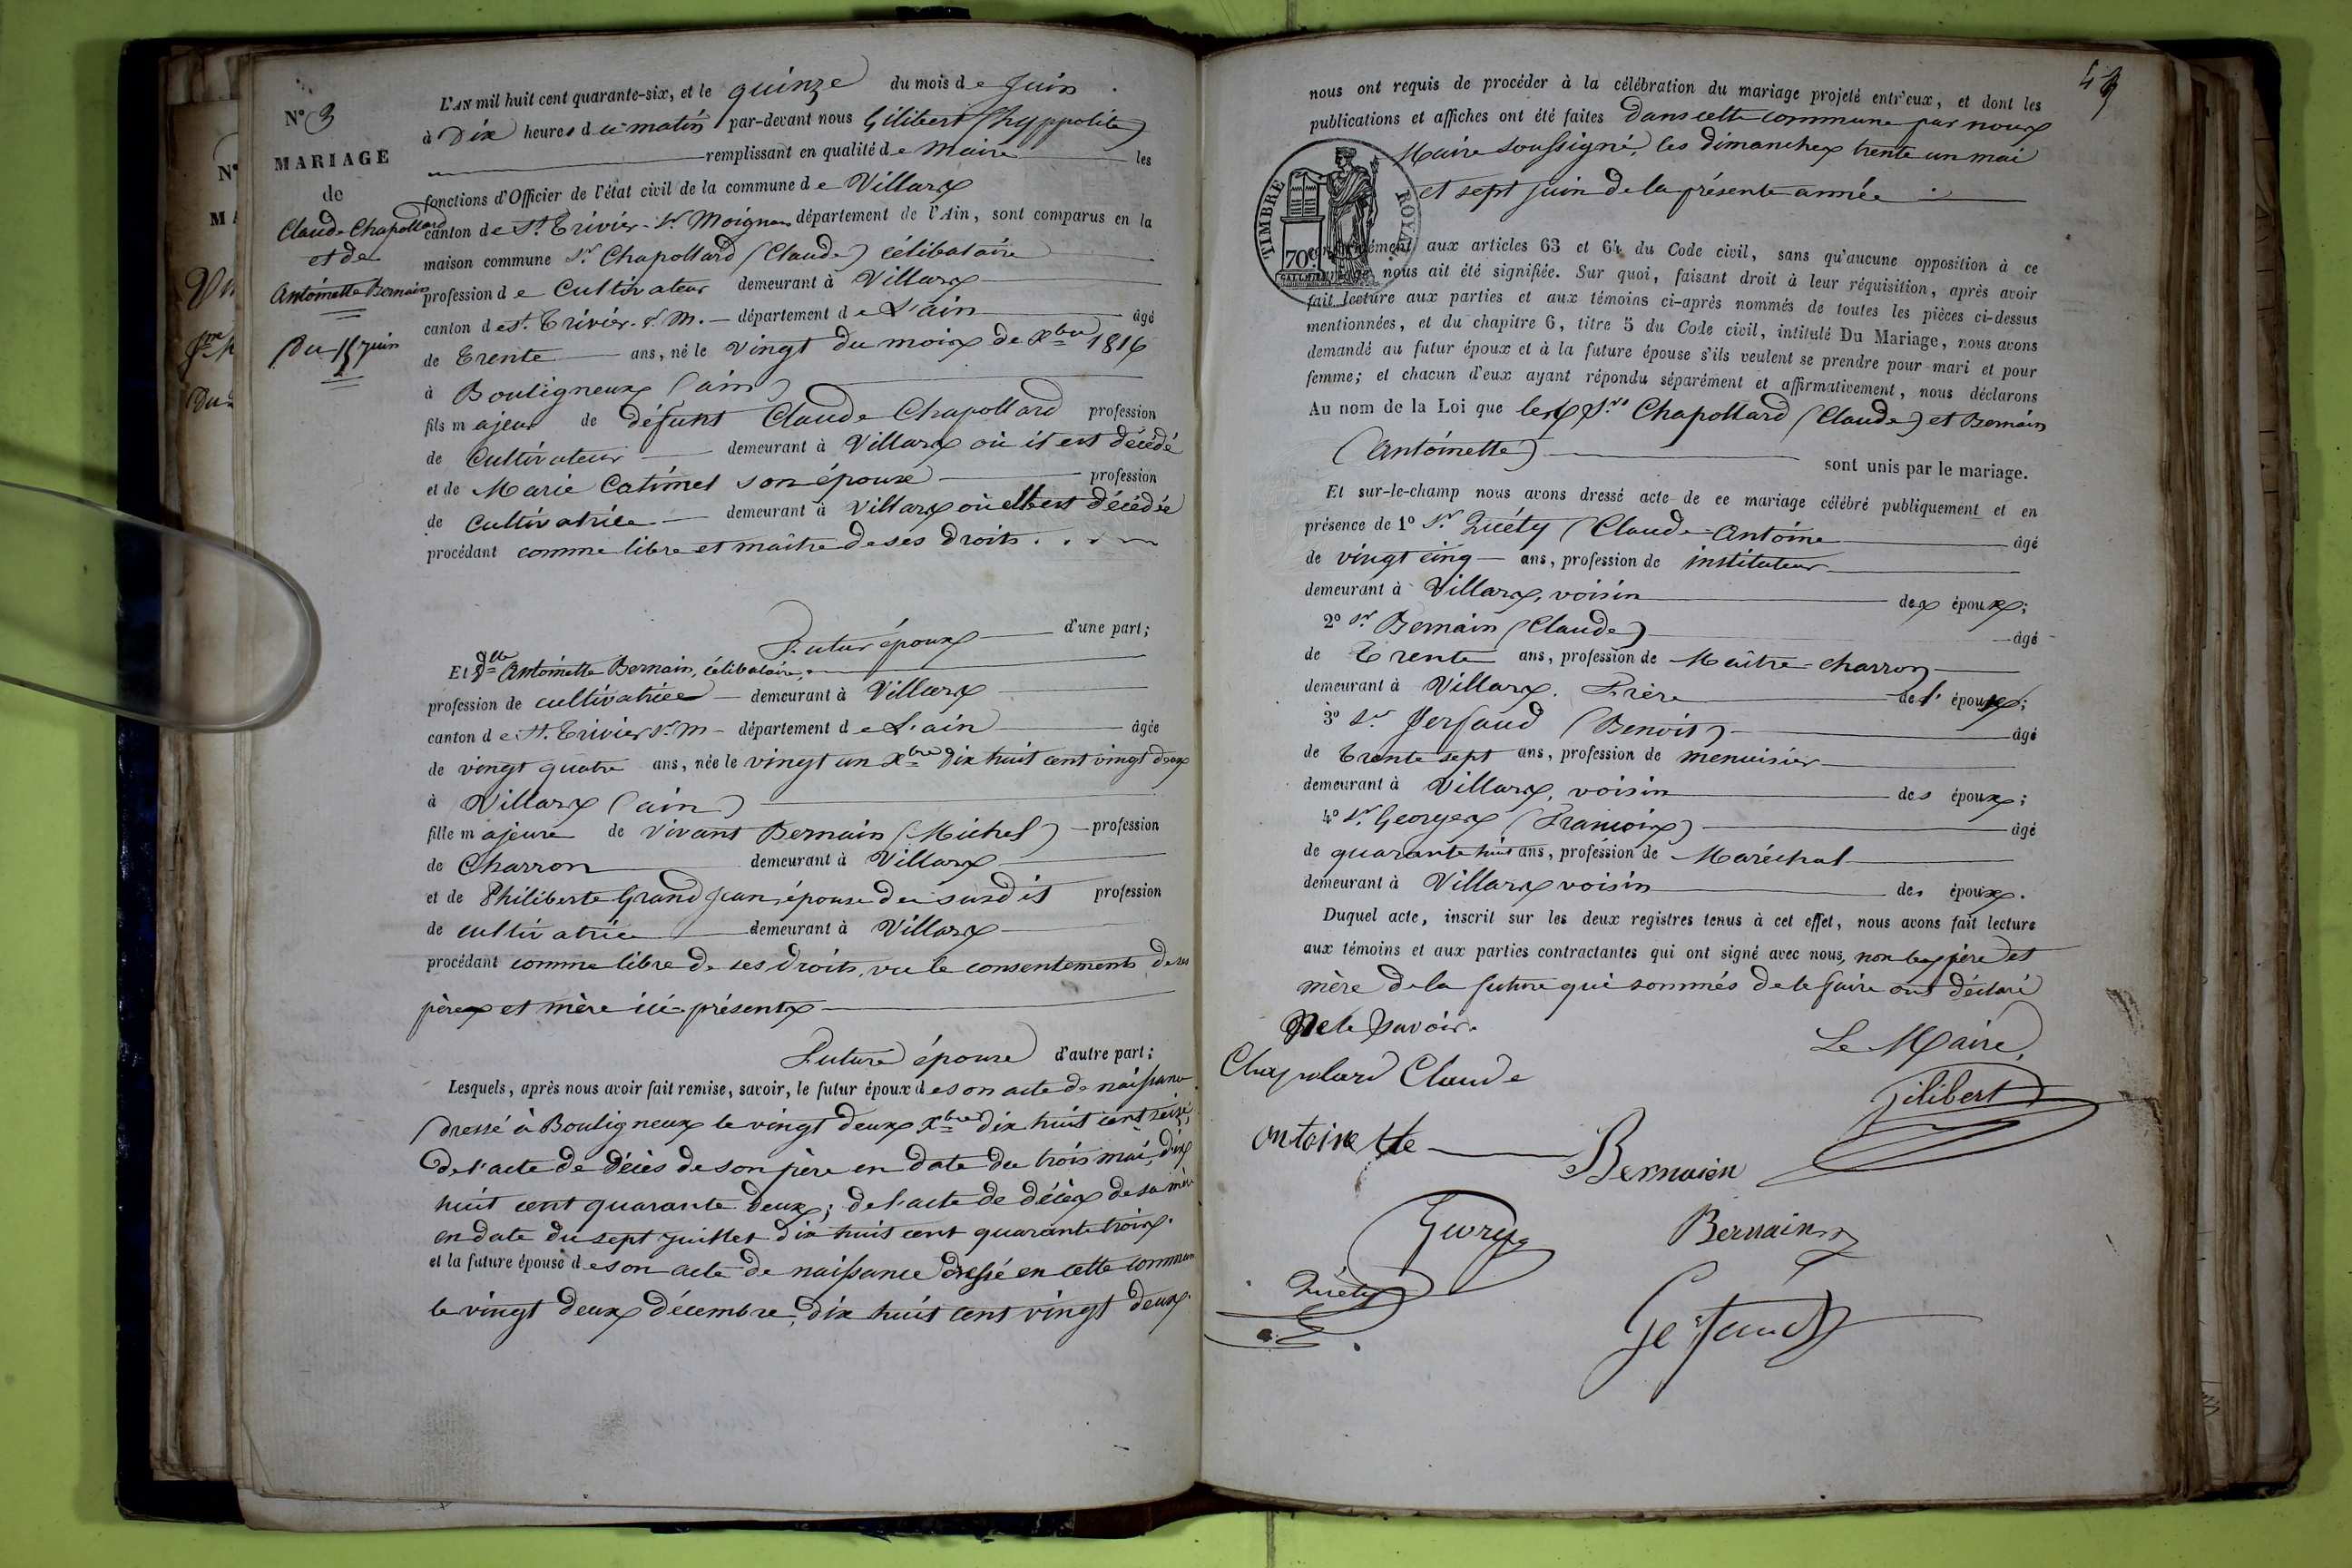 N° 3
MARIAGE
de
Claude Chapollard
et de
Antoinette Bernain
Du 15 juin
L'AN mil huit cent quarante-six, et le quinze du mois de juin
à Dix heures du matin par-devant nous Gilibert (hyppolite)
remplissant en qualité de Maire les
fonctions d'Officier de l'état civil de la commune de Villars
canton de St. Trivier-sr. Moignans département de l'Ain, sont comparus en la
maison commune Sr. Chapollard (Claude) célibataire
profession de Cultivateur demeurant à Villars
canton de St. Trivier. s. M. département de L'ain âgé
de Trente ans, né le Vingt du mois de Xbre 1816
à Bouligneux (ain)
fils majeur de défunt Claude Chapollard profession
de Cultivateur demeurant à Villars où il est décédé
et de Marie Catimel son épouse profession
de Cultivatrice demeurant à Villars où elle est décédée
procédant comme libre et maître de ses droits . . .
Futur époux d'une part;
Et Dlle Antoinette Bernain, célibataire,
profession de cultivatrice demeurant à Villars
canton de St. Trivier s. M département de L'ain âgée
de vingt quatre ans, née le vingt un Xbre dix huit cent vingt deux
à Villars (ain)
fille majeure de Vivant Bernain (Michel) profession
de Charron demeurant à Villars
et de Philiberte Grand Jean, épouse du susdit profession
de cultivatrice demeurant à Villars
procédant comme libre de ses droits, vu le consentement de ses
pères et mère ici présents
Future épouse d'autre part;
Lesquels, après nous avoir fait remise, savoir, le futur époux de son acte de naissance
(dressé à Bouligneux le vingt deux Xbre dix huit cent seize;
De l'acte de décès de son père en date du trois mai, dix
huit cent quarante deux; de l'acte de décès de sa mère
en date du sept juillet dix huit cent quarante trois.
et la future épouse de son acte de naissance dressé en cette commune
le vingt deux décembre, dix huit cent vingt deux.
nous ont requis de procéder à la célébration du mariage projeté entr'eux, et dont les
publications et affiches ont été faites Dans cette commune par nous
Maire soussigné, les dimanches trente un mai
et sept juin de la présente année
TIMBRE ROYAL
70c.
conformément aux articles 63 et 64 du Code civil, sans qu'aucune opposition à ce
mariage nous ait été signifiée. Sur quoi, faisant droit à leur réquisition, après avoir
fait lecture aux parties et aux témoins ci-après nommés de toutes les pièces ci-dessus
mentionnées, et du chapitre 6, titre 5 du Code civil, intitulé Du Mariage, nous avons
demandé au futur époux et à la future épouse s'ils veulent se prendre pour mari et pour
femme; et chacun d'eux ayant répondu séparément et affirmativement, nous déclarons
Au nom de la Loi que les Srs Chapollard (Claude) et Bernain
(Antoinette) sont unis par le mariage.
Et sur-le-champ nous avons dressé acte de ce mariage célébré publiquement et en
présence de 1° Sr Quéty (Claude-Antoine âgé
de vingt cinq ans, profession de instituteur
demeurant à Villars, voisin des époux;
2° Sr Bernain (Claude) âgé
de Trente ans, profession de Maître-charron
demeurant à Villars. Frère de l'épouse;
3° Sr Jersaud (Benoit) âgé
de trente sept ans, profession de menuisier
demeurant à Villars, voisin des époux;
4° Sr Georges (François) âgé
de quarante huit ans, profession de Maréchal
demeurant à Villars voisin des époux.
Duquel acte, inscrit sur les deux registres tenus à cet effet, nous avons fait lecture
aux témoins et aux parties contractantes qui ont signé avec nous, non les père et
mère de la future qui sommés de le faire ont déclaré
Ne le savoir.
Le Maire,
Chapolard Claude
Gilibert
antoinette Bernaien
Bernain
Quéty